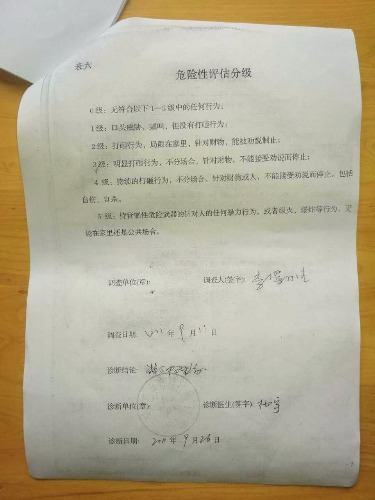 表六
危险性评估分级
0级：无符合以下1—5级中的任何行为；
1级：口头威胁，喊叫，但没有打砸行为；
2级：打砸行为，局限在家里，针对财物，能被劝说制止；
3级：明显打砸行为，不分场合，针对财物，不能接受劝说而停止；
4级：持续的打砸行为，不分场合，针对财物或人，不能接受劝说而停止。包括
自伤、自杀。
5级：持管制性危险武器的针对人的任何暴力行为，或者纵火、爆炸等行为，无
论在家里还是公共场合。
调查单位(章)： 调查人(签字)：
调查日期： 年9月 日
诊断结论：
诊断单位(章)： 诊断医生(签字)：
诊断日期： 2011年9月26日